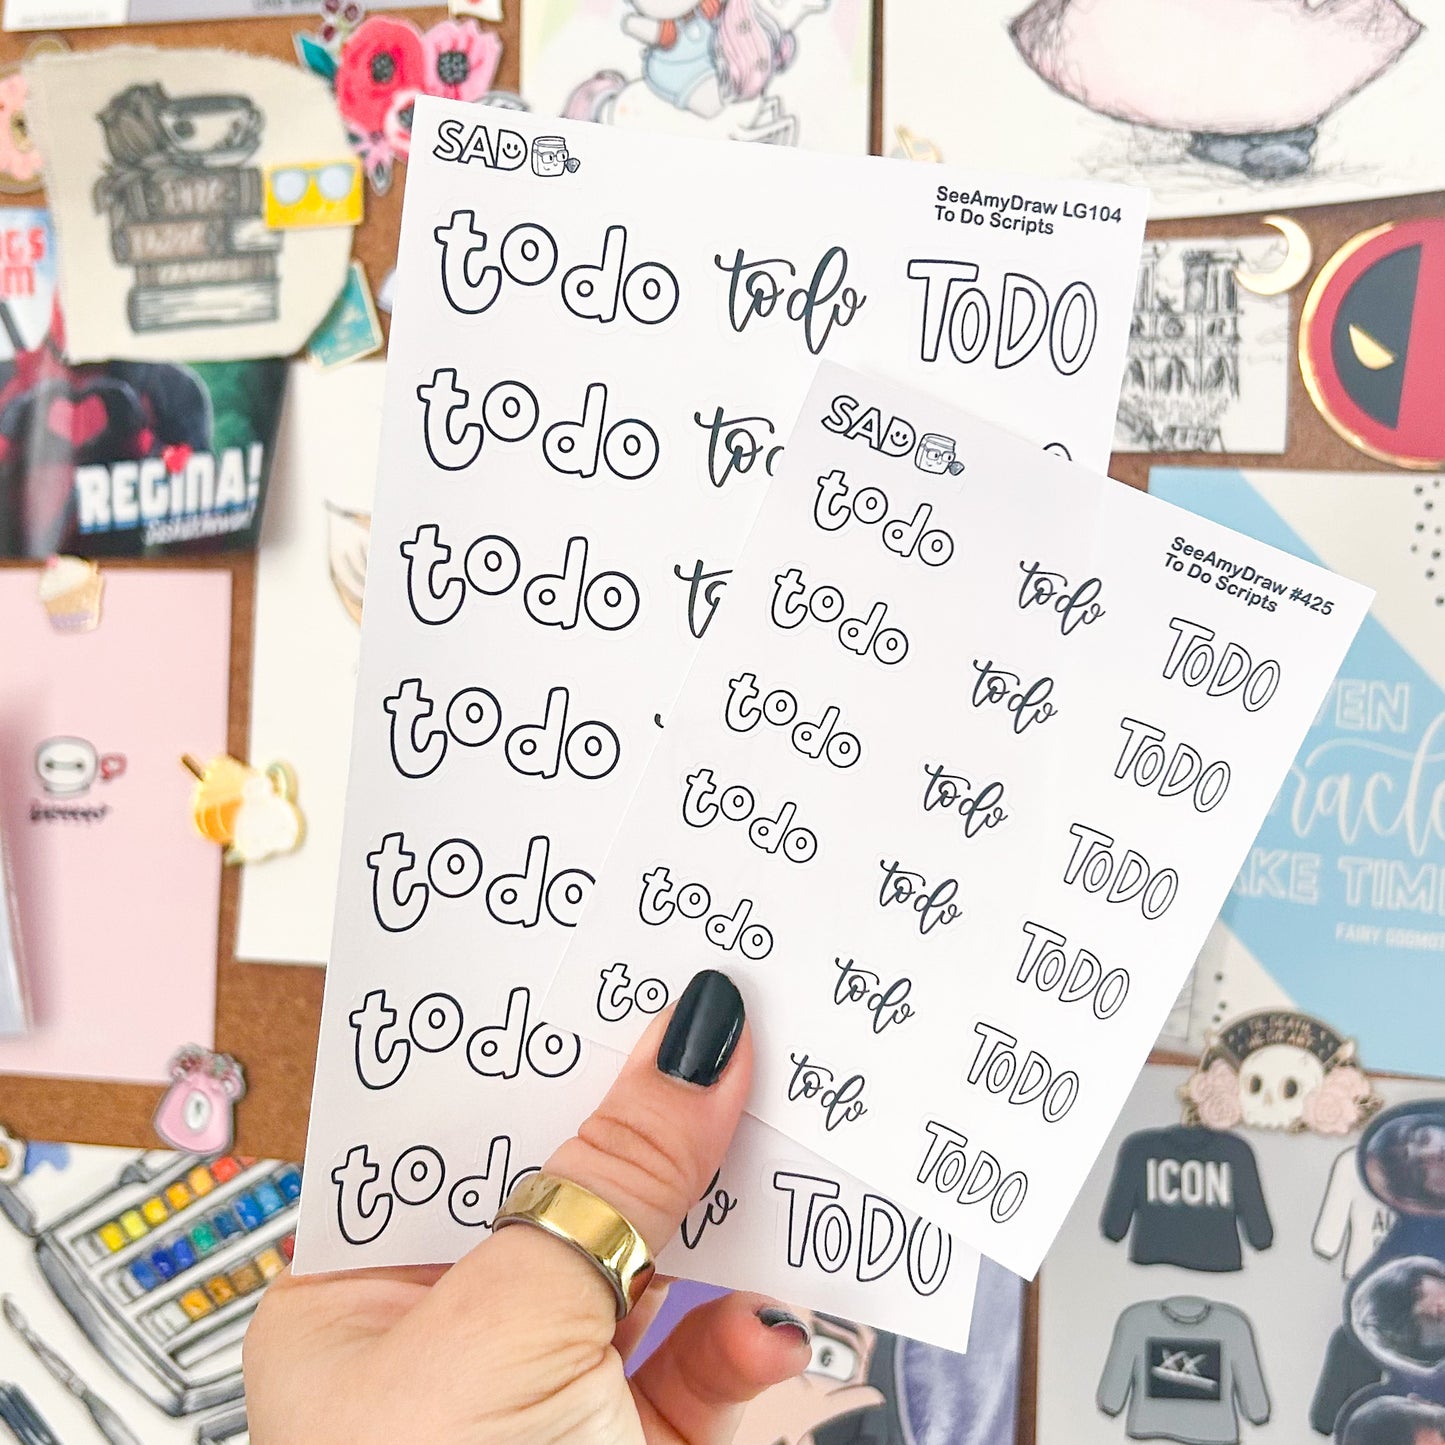 SAD
SeeAmyDraw LG104
To Do Scripts
to do
to do
TO DO
to do
to do
to do
to do
to do
to do
to do
TO DO
SAD
SeeAmyDraw #425
To Do Scripts
to do
to do
TO DO
to do
to do
TO DO
to do
to do
TO DO
to do
to do
TO DO
to do
to do
TO DO
to
to do
TO DO
REGINA!
Saskatchewan!
MAKE TIME
FAIRY GODMOT
ICON